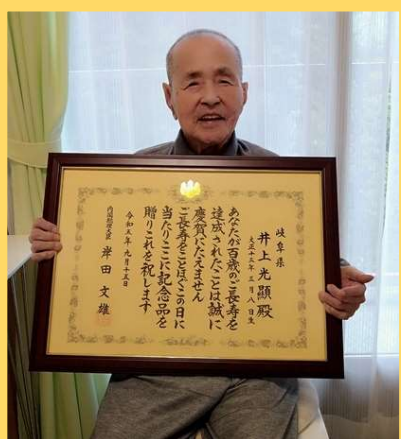 岐阜県
井上光顯殿
大正十三年三月八日生
あなたが百歳のご長寿を
達成されたことは誠に
慶賀にたえません
ご長寿をことほぐこの日に
当たりここに記念品を
贈りこれを祝します
令和五年九月十五日
内閣総理大臣 岸田文雄